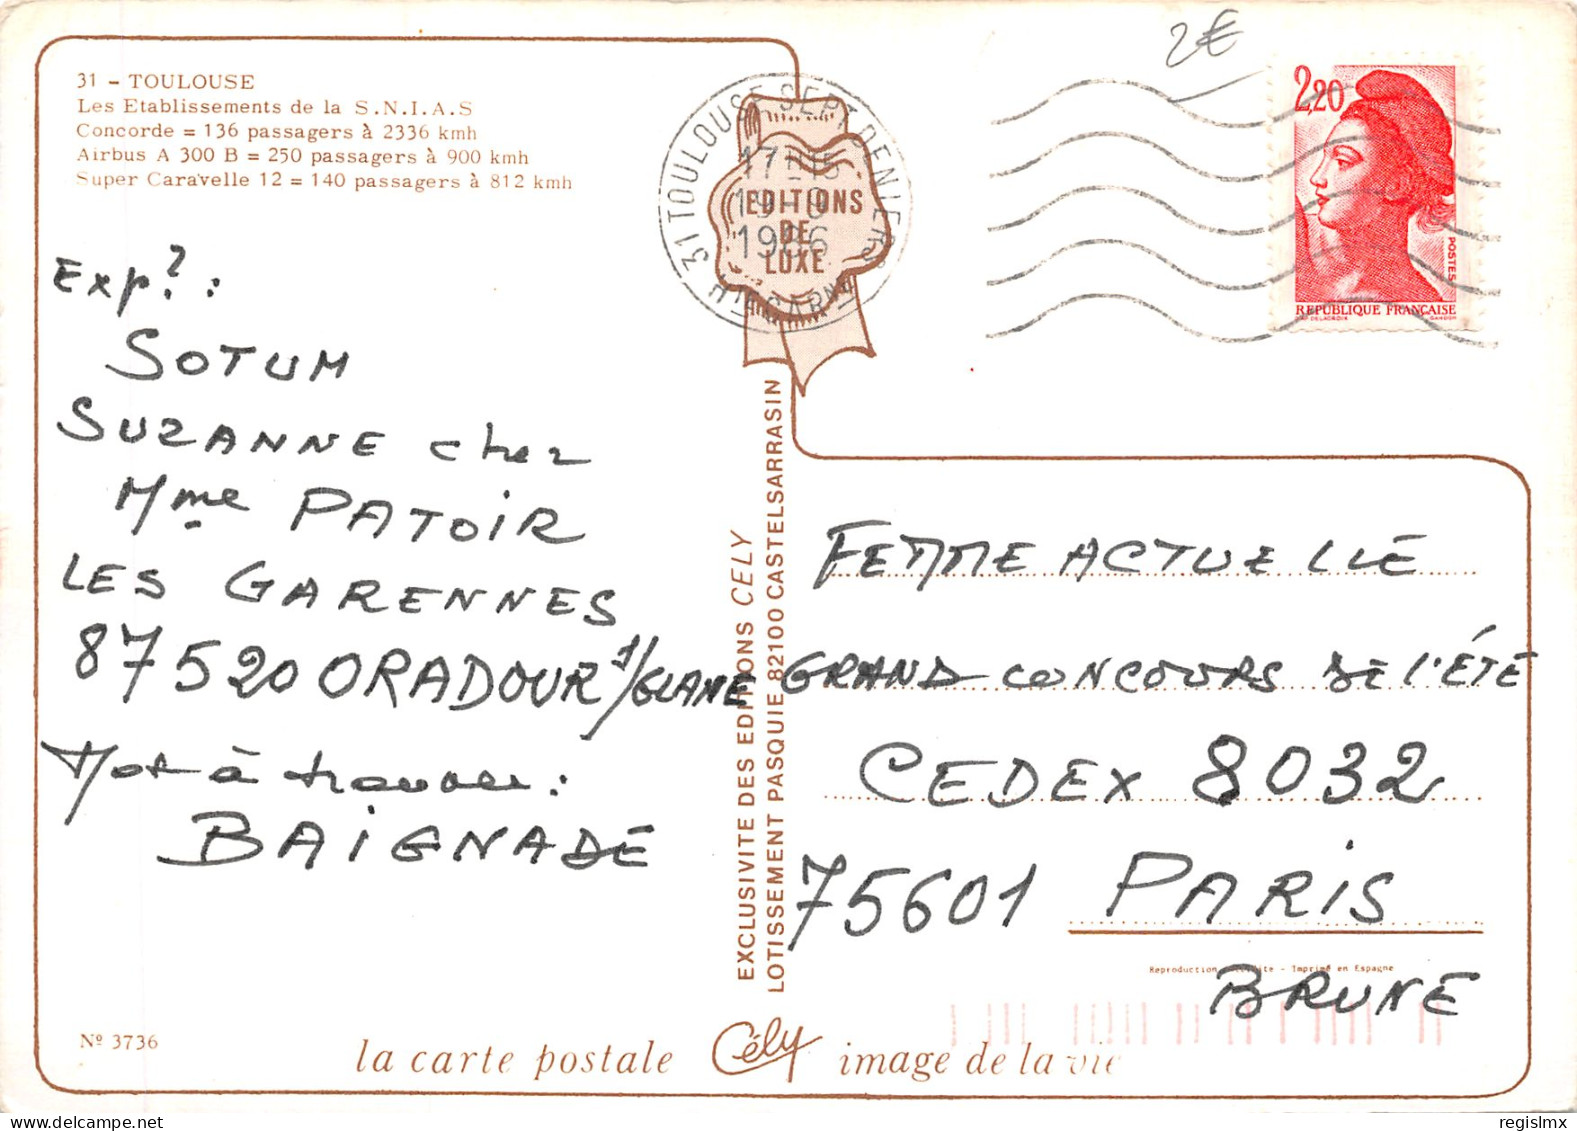 31 - TOULOUSE
Les Etablissements de la S.N.I.A.S
Concorde = 136 passagers à 2336 kmh
Airbus A 300 B = 250 passagers à 900 kmh
Super Caravelle 12 = 140 passagers à 812 kmh
2€
31 TOULOUSE SEPT DENIERS
17-15
19-8
1986
Hte GARNE
EDITIONS
DE
LUXE
2,20
POSTES
REPUBLIQUE FRANÇAISE
Exp? :
SOTUM
SUZANNE chez
Mme PATOIR
LES GARENNES
87520 ORADOUR s/GLANE
Mot à trouver :
BAIGNADE
EXCLUSIVITE DES EDITIONS CELY
LOTISSEMENT PASQUIE 82100 CASTELSARRASIN
FEMME ACTUELLE
GRAND CONCOURS DE L'ÉTÉ
CEDEX 8032
75601 PARIS
Imprimé en Espagne
BRUNE
Nº 3736
la carte postale Cély image de la vie
delcampe.net
regislmx